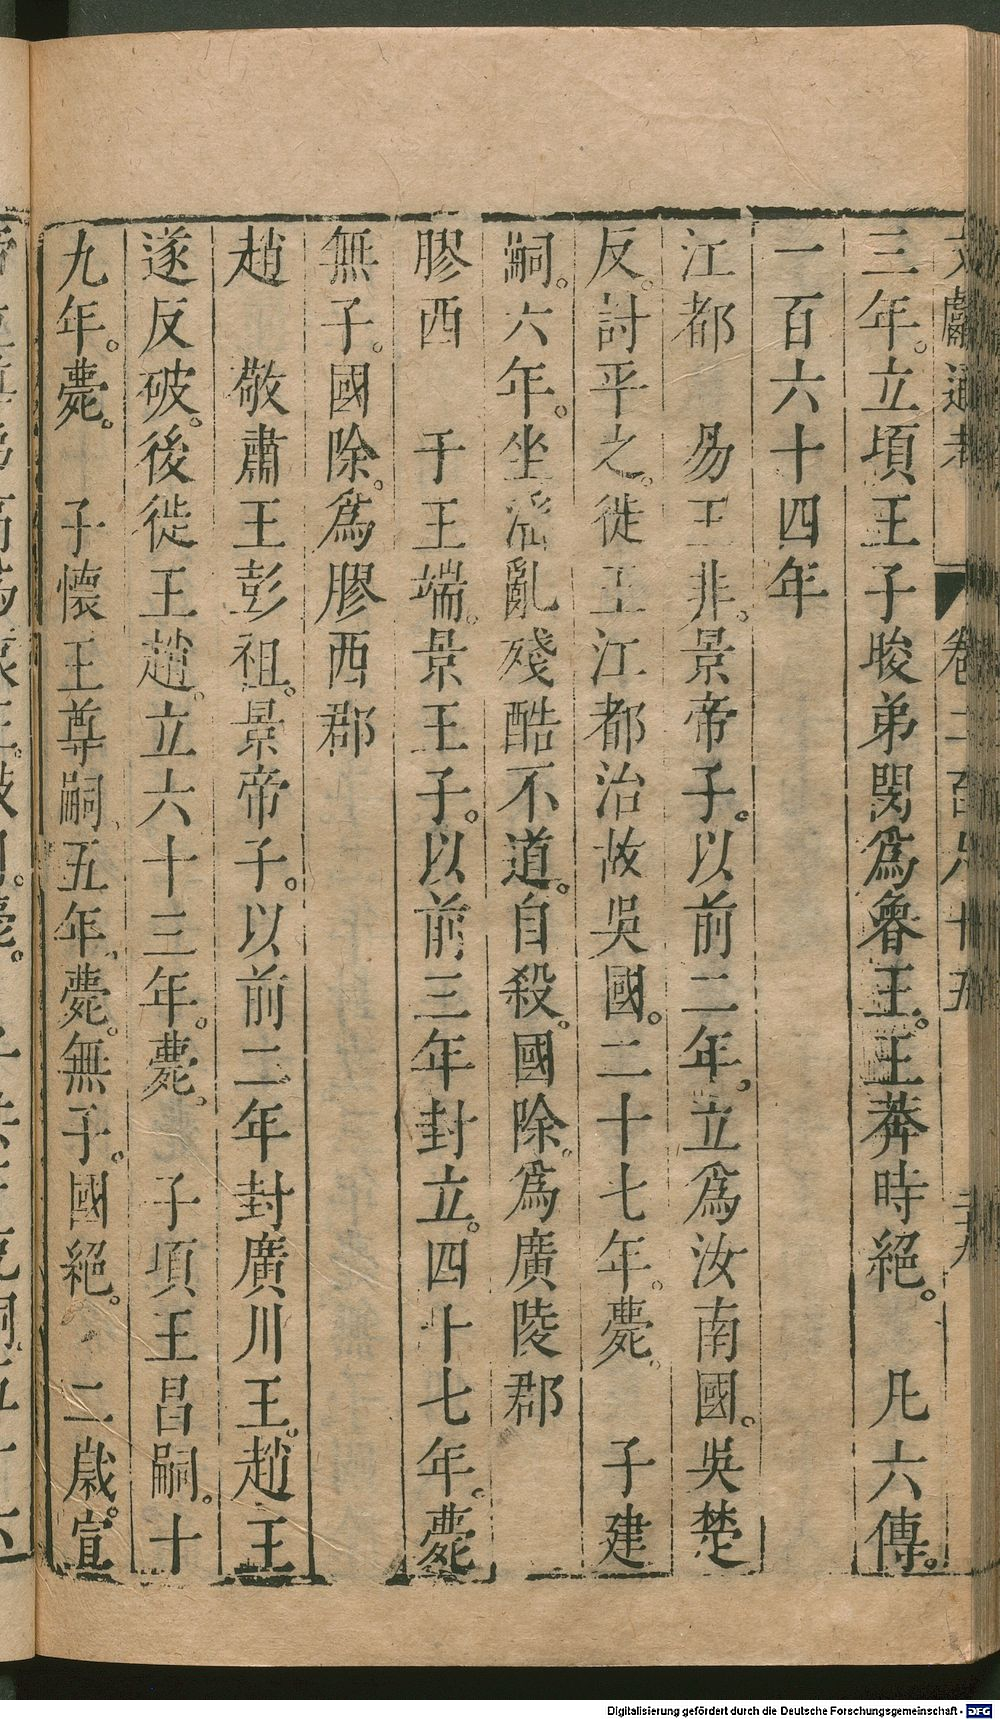 文獻通考 卷二百六十五 三九
三年。立頃王子晙弟閔爲魯王。王莽時絕。 凡六傳。
一百六十四年
江都 易王非。景帝子。以前二年。立爲汝南國。吳楚
反。討平之。徙王江都治故吳國。二十七年。薨。 子建
嗣。六年。坐淫亂殘酷不道。自殺。國除。爲廣陵郡
膠西 于王端。景王子。以前三年封立。四十七年。薨
無子。國除。爲膠西郡
趙 敬肅王彭祖。景帝子。以前二年封廣川王。趙王
遂反破。後徙王趙。立六十三年。薨。 子項王昌嗣。十
九年。薨。 子懷王尊嗣。五年。薨。無子。國絕。 二歲。宣
Digitalisierung gefördert durch die Deutsche Forschungsgemeinschaft - DFG